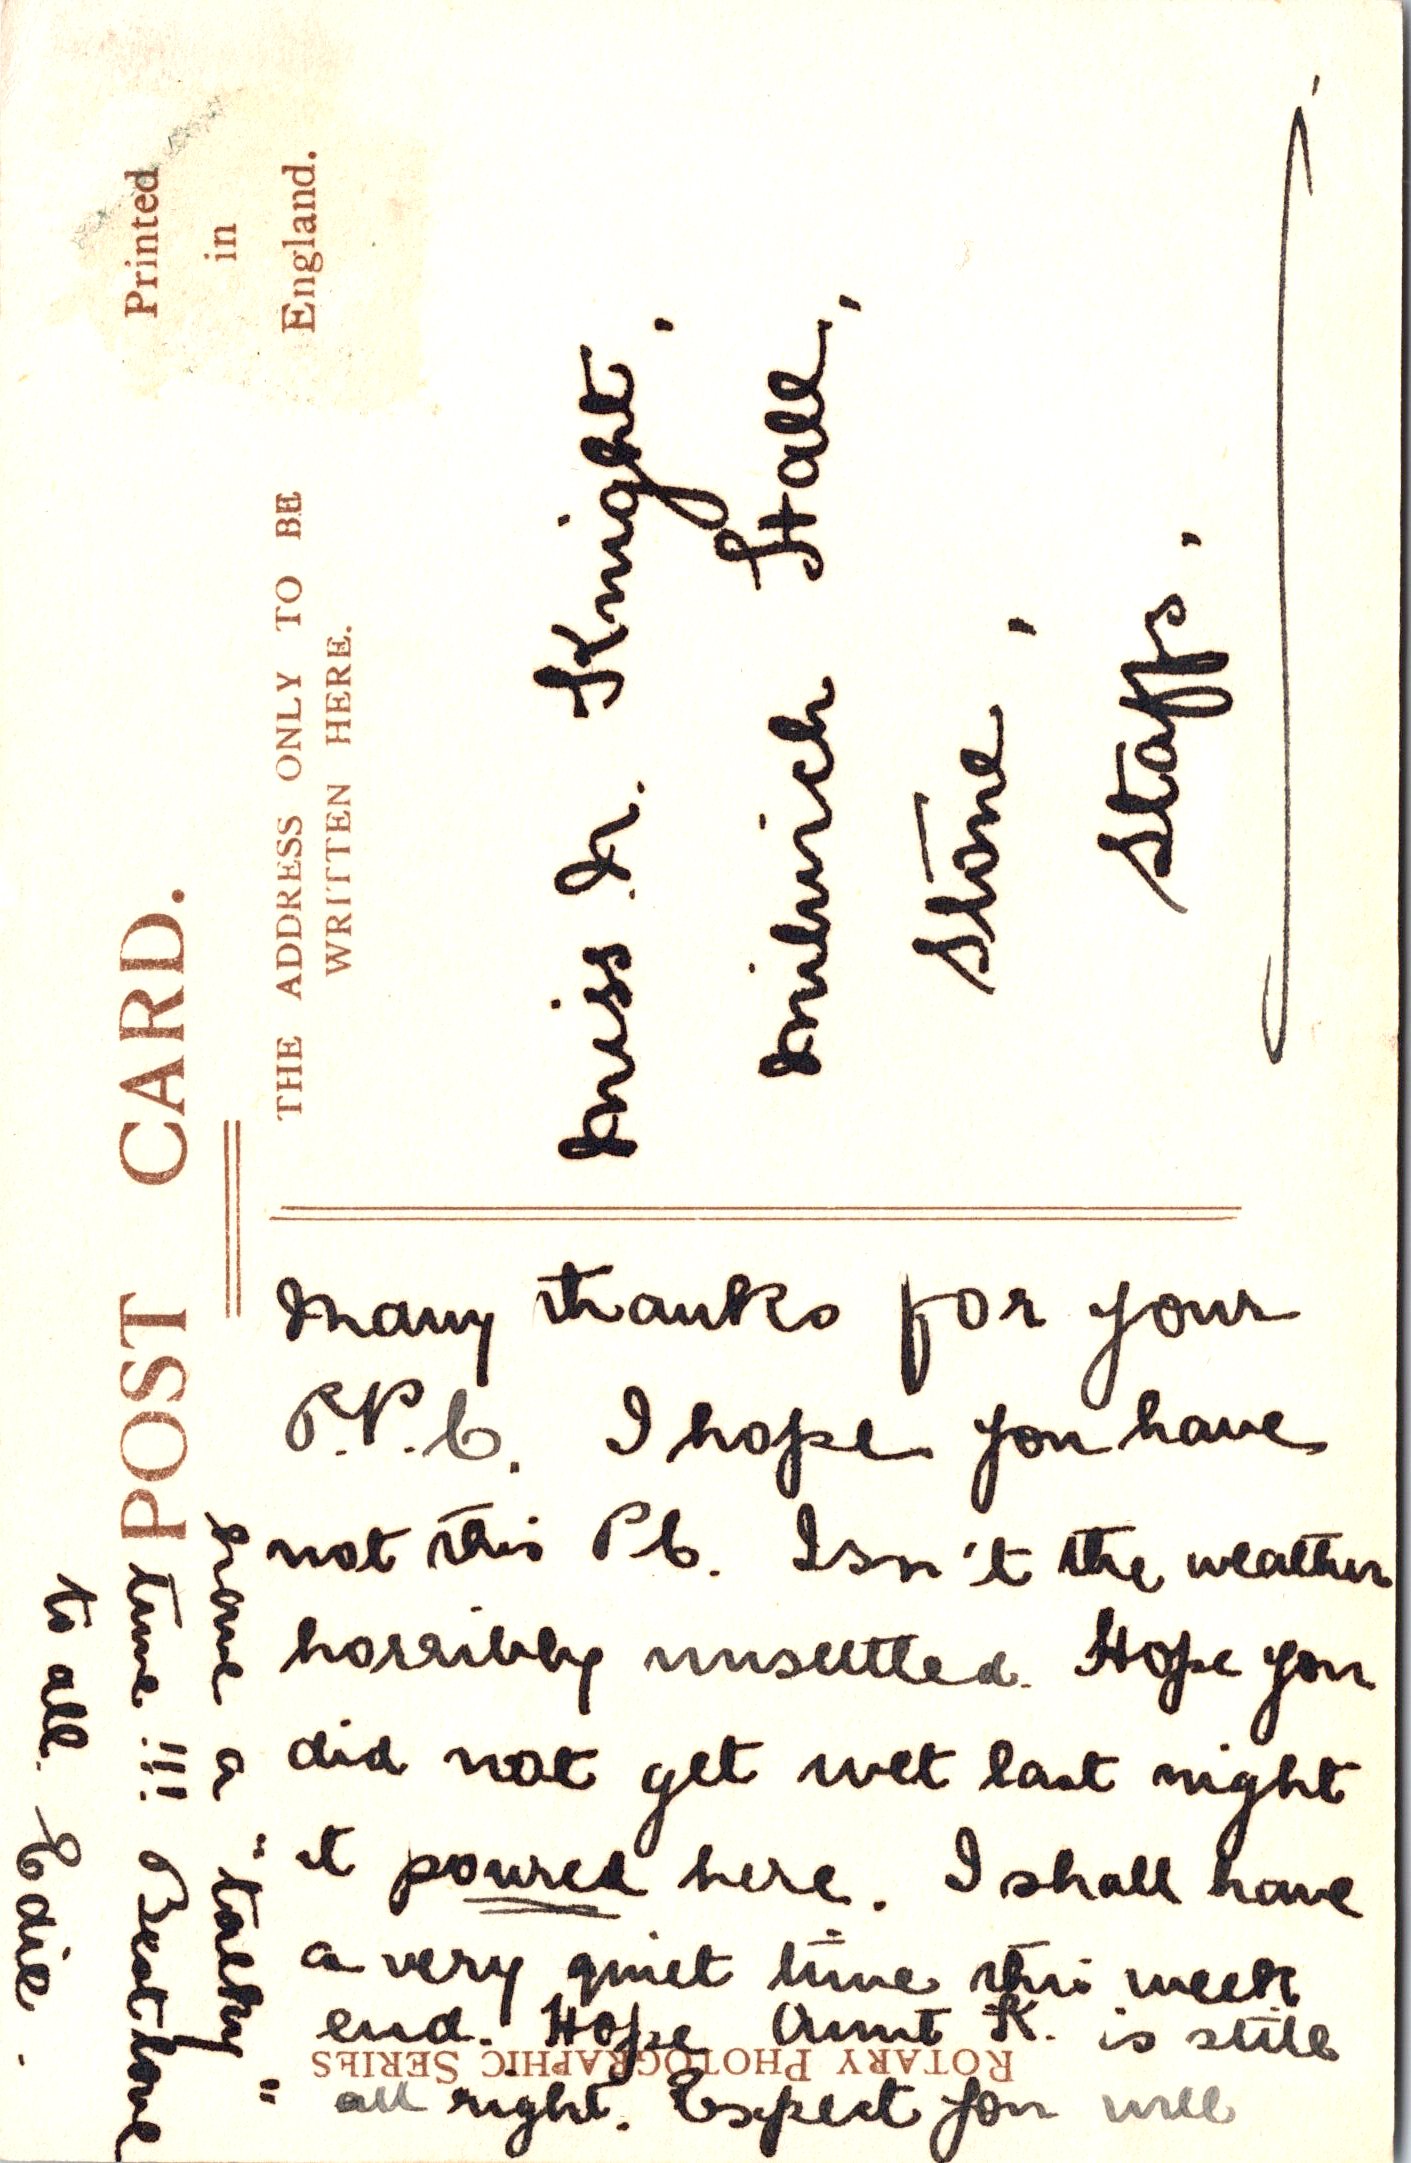 POST CARD.
Printed
in
England.
THE ADDRESS ONLY TO BE
WRITTEN HERE.
Miss N. Knight,
Milwich Hall,
Stone,
Staffs.
Many thanks for your
P.P.C. I hope you have
not this P.C. Isn't the weather
horribly unsettled. Hope you
did not get wet last night
it poured here. I shall have
a very quiet time this week
end. Hope Aunt K. is still
all right. Expect you will
have a "talky"
time!!! Best love
to all. Edie.
ROTARY PHOTOGRAPHIC SERIES